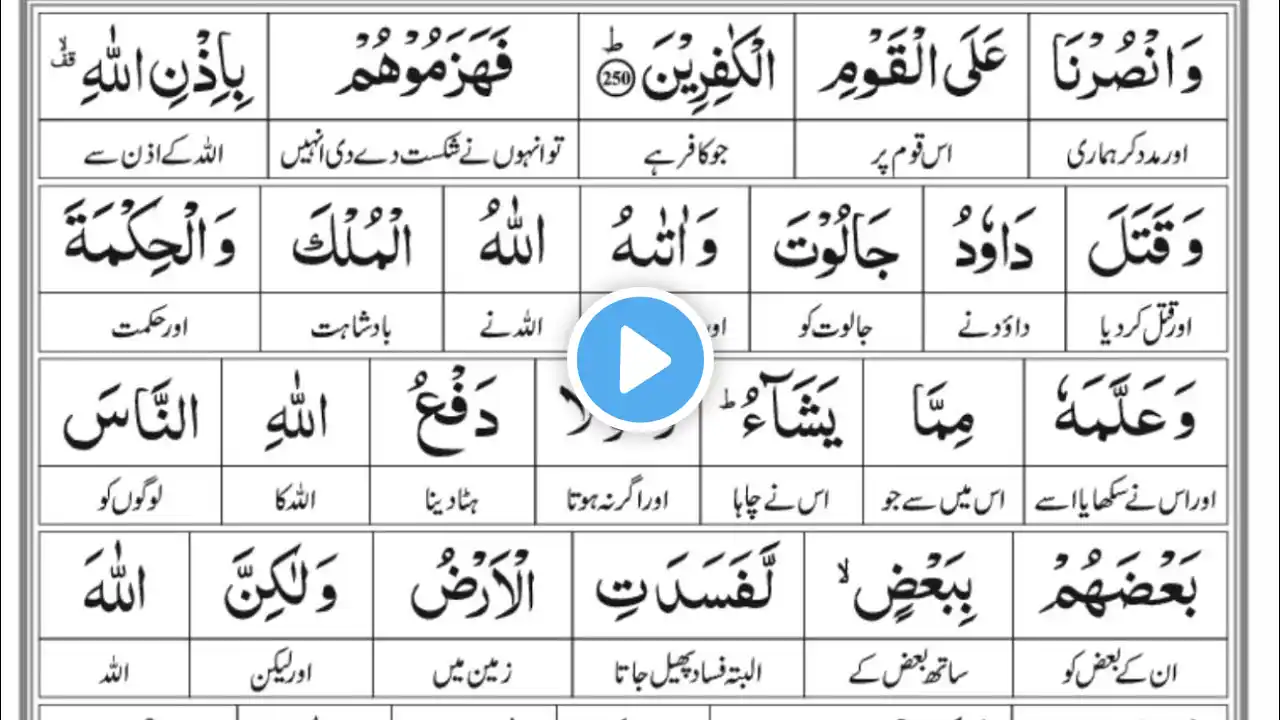 وَانْصُرْنَا عَلَى الْقَوْمِ الْكٰفِرِيْنَ ؕ 250 فَهَزَمُوْهُمْ بِاِذْنِ اللّٰهِ ۙ قف
اور مدد کر ہماری اس قوم پر جو کافر ہے تو انہوں نے شکست دے دی انہیں اللہ کے اذن سے
وَقَتَلَ دَاوٗدُ جَالُوْتَ وَاٰتٰىهُ اللّٰهُ الْمُلْكَ وَالْحِكْمَةَ
اور قتل کر دیا داؤد نے جالوت کو اور اللہ نے بادشاہت اور حکمت
وَعَلَّمَهٗ مِمَّا يَشَآءُ ؕ دَفْعُ اللّٰهِ النَّاسَ
اور اس نے سکھایا اسے اس میں سے جو اس نے چاہا اور اگر نہ ہوتا ہٹا دینا اللہ کا لوگوں کو
بَعْضَهُمْ بِبَعْضٍ ۙ لَّفَسَدَتِ الْاَرْضُ وَلٰكِنَّ اللّٰهَ
ان کے بعض کو ساتھ بعض کے البتہ فساد پھیل جاتا زمین میں اور لیکن اللہ